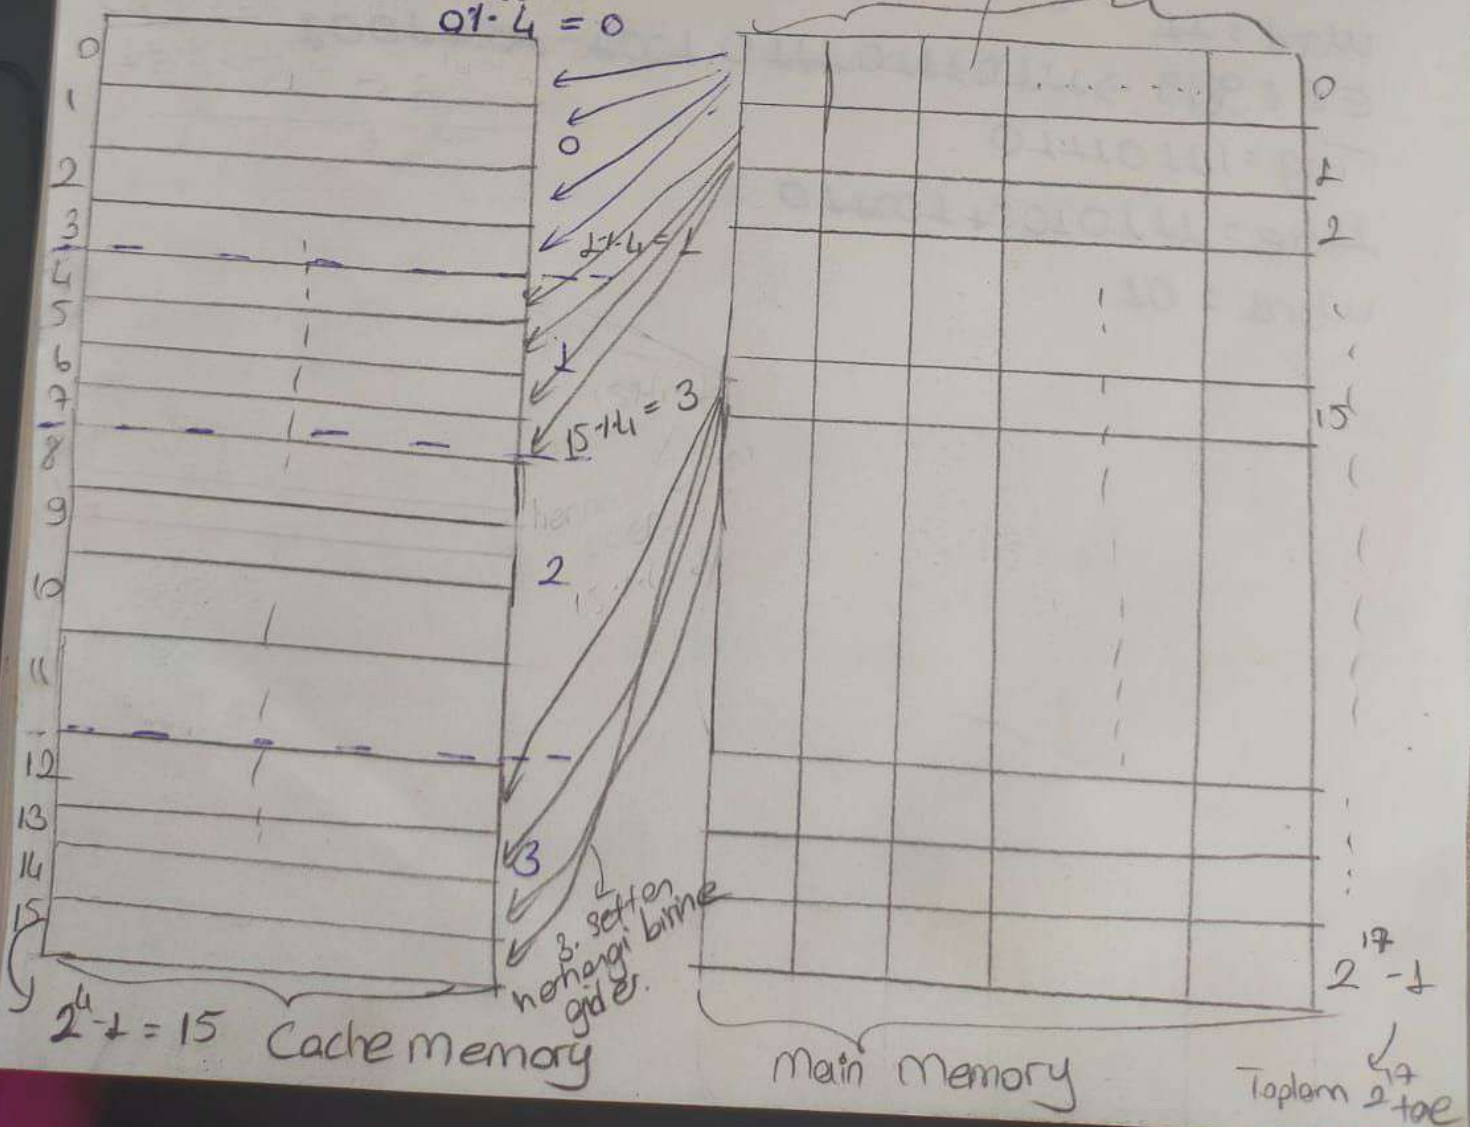 0% 4 = 0
0
1
2
3
4
5
6
7
8
9
10
11
12
13
14
15
0
1%4=1
1
15%4=3
2
3
3. setten
herhangi birine
gider.
0
1
2
15
2^17-1
2^4-1=15
Cache memory
Main Memory
Toplam 2^17 tane